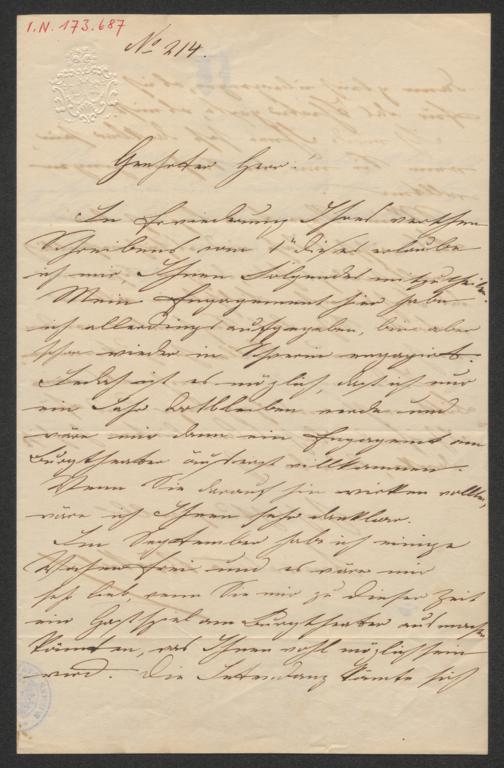 I.N. 173.687
No 214.
Geehrter Herr!
In Erwiederung Ihres werthen
Schreibens vom 1t dieses erlaube
ich mir, Ihnen Folgendes mitzutheilen.
Mein Engagement hier habe
ich allerdings aufgegeben, bin aber
schon wieder in Schwerin engagirt.
Jedoch ist es möglich, daß ich nur
ein Jahr dortbleiben werde und
wäre mir dann ein Engagement am
Burgtheater äußerst willkommen.
Wenn Sie darauf hin wirken wollten,
wäre ich Ihnen sehr dankbar.
Im September habe ich einige
Wochen frei und es wäre mir
sehr lieb, wenn Sie mir zu dieser Zeit
ein Gastspiel am Burgtheater ausmachen
könnten, was Ihnen wohl möglich sein
wird. Die Intendanz könnte sich